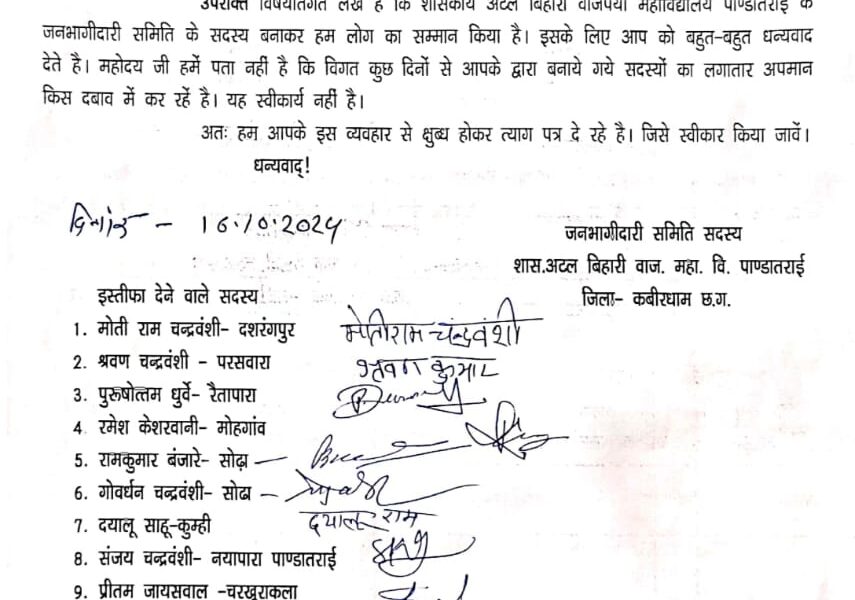 उपरोक्त विषयांतर्गत लेख है कि शासकीय अटल बिहारी वाजपेयी महाविद्यालय पाण्डातराई के
जनभागीदारी समिति के सदस्य बनाकर हम लोग का सम्मान किया है। इसके लिए आप को बहुत-बहुत धन्यवाद
देते है। महोदय जी हमें पता नहीं है कि विगत कुछ दिनों से आपके द्वारा बनाये गये सदस्यों का लगातार अपमान
किस दबाव में कर रहें है। यह स्वीकार्य नहीं है।
अतः हम आपके इस व्यवहार से क्षुब्ध होकर त्याग पत्र दे रहे है। जिसे स्वीकार किया जावें।
धन्यवाद्!
दिनांक - 16.10.2024
जनभागीदारी समिति सदस्य
शास.अटल बिहारी वाज. महा. वि. पाण्डातराई
जिला- कबीरधाम छ.ग.
इस्तीफा देने वाले सदस्य
1. मोती राम चन्द्रवंशी- दशरंगपुर मोतीराम चन्द्रवंशी
2. श्रवण चन्द्रवंशी - परसवारा श्रवण कुमार
3. पुरूषोत्तम धुर्वे- रैतापारा
4. रमेश केशरवानी- मोहगांव
5. रामकुमार बंजारे- सोढ़ा
6. गोवर्धन चन्द्रवंशी- सोढा
7. दयालू साहू-कुम्ही दयालू राम
8. संजय चन्द्रवंशी- नयापारा पाण्डातराई
9. प्रीतम जायसवाल -चरखुराकला